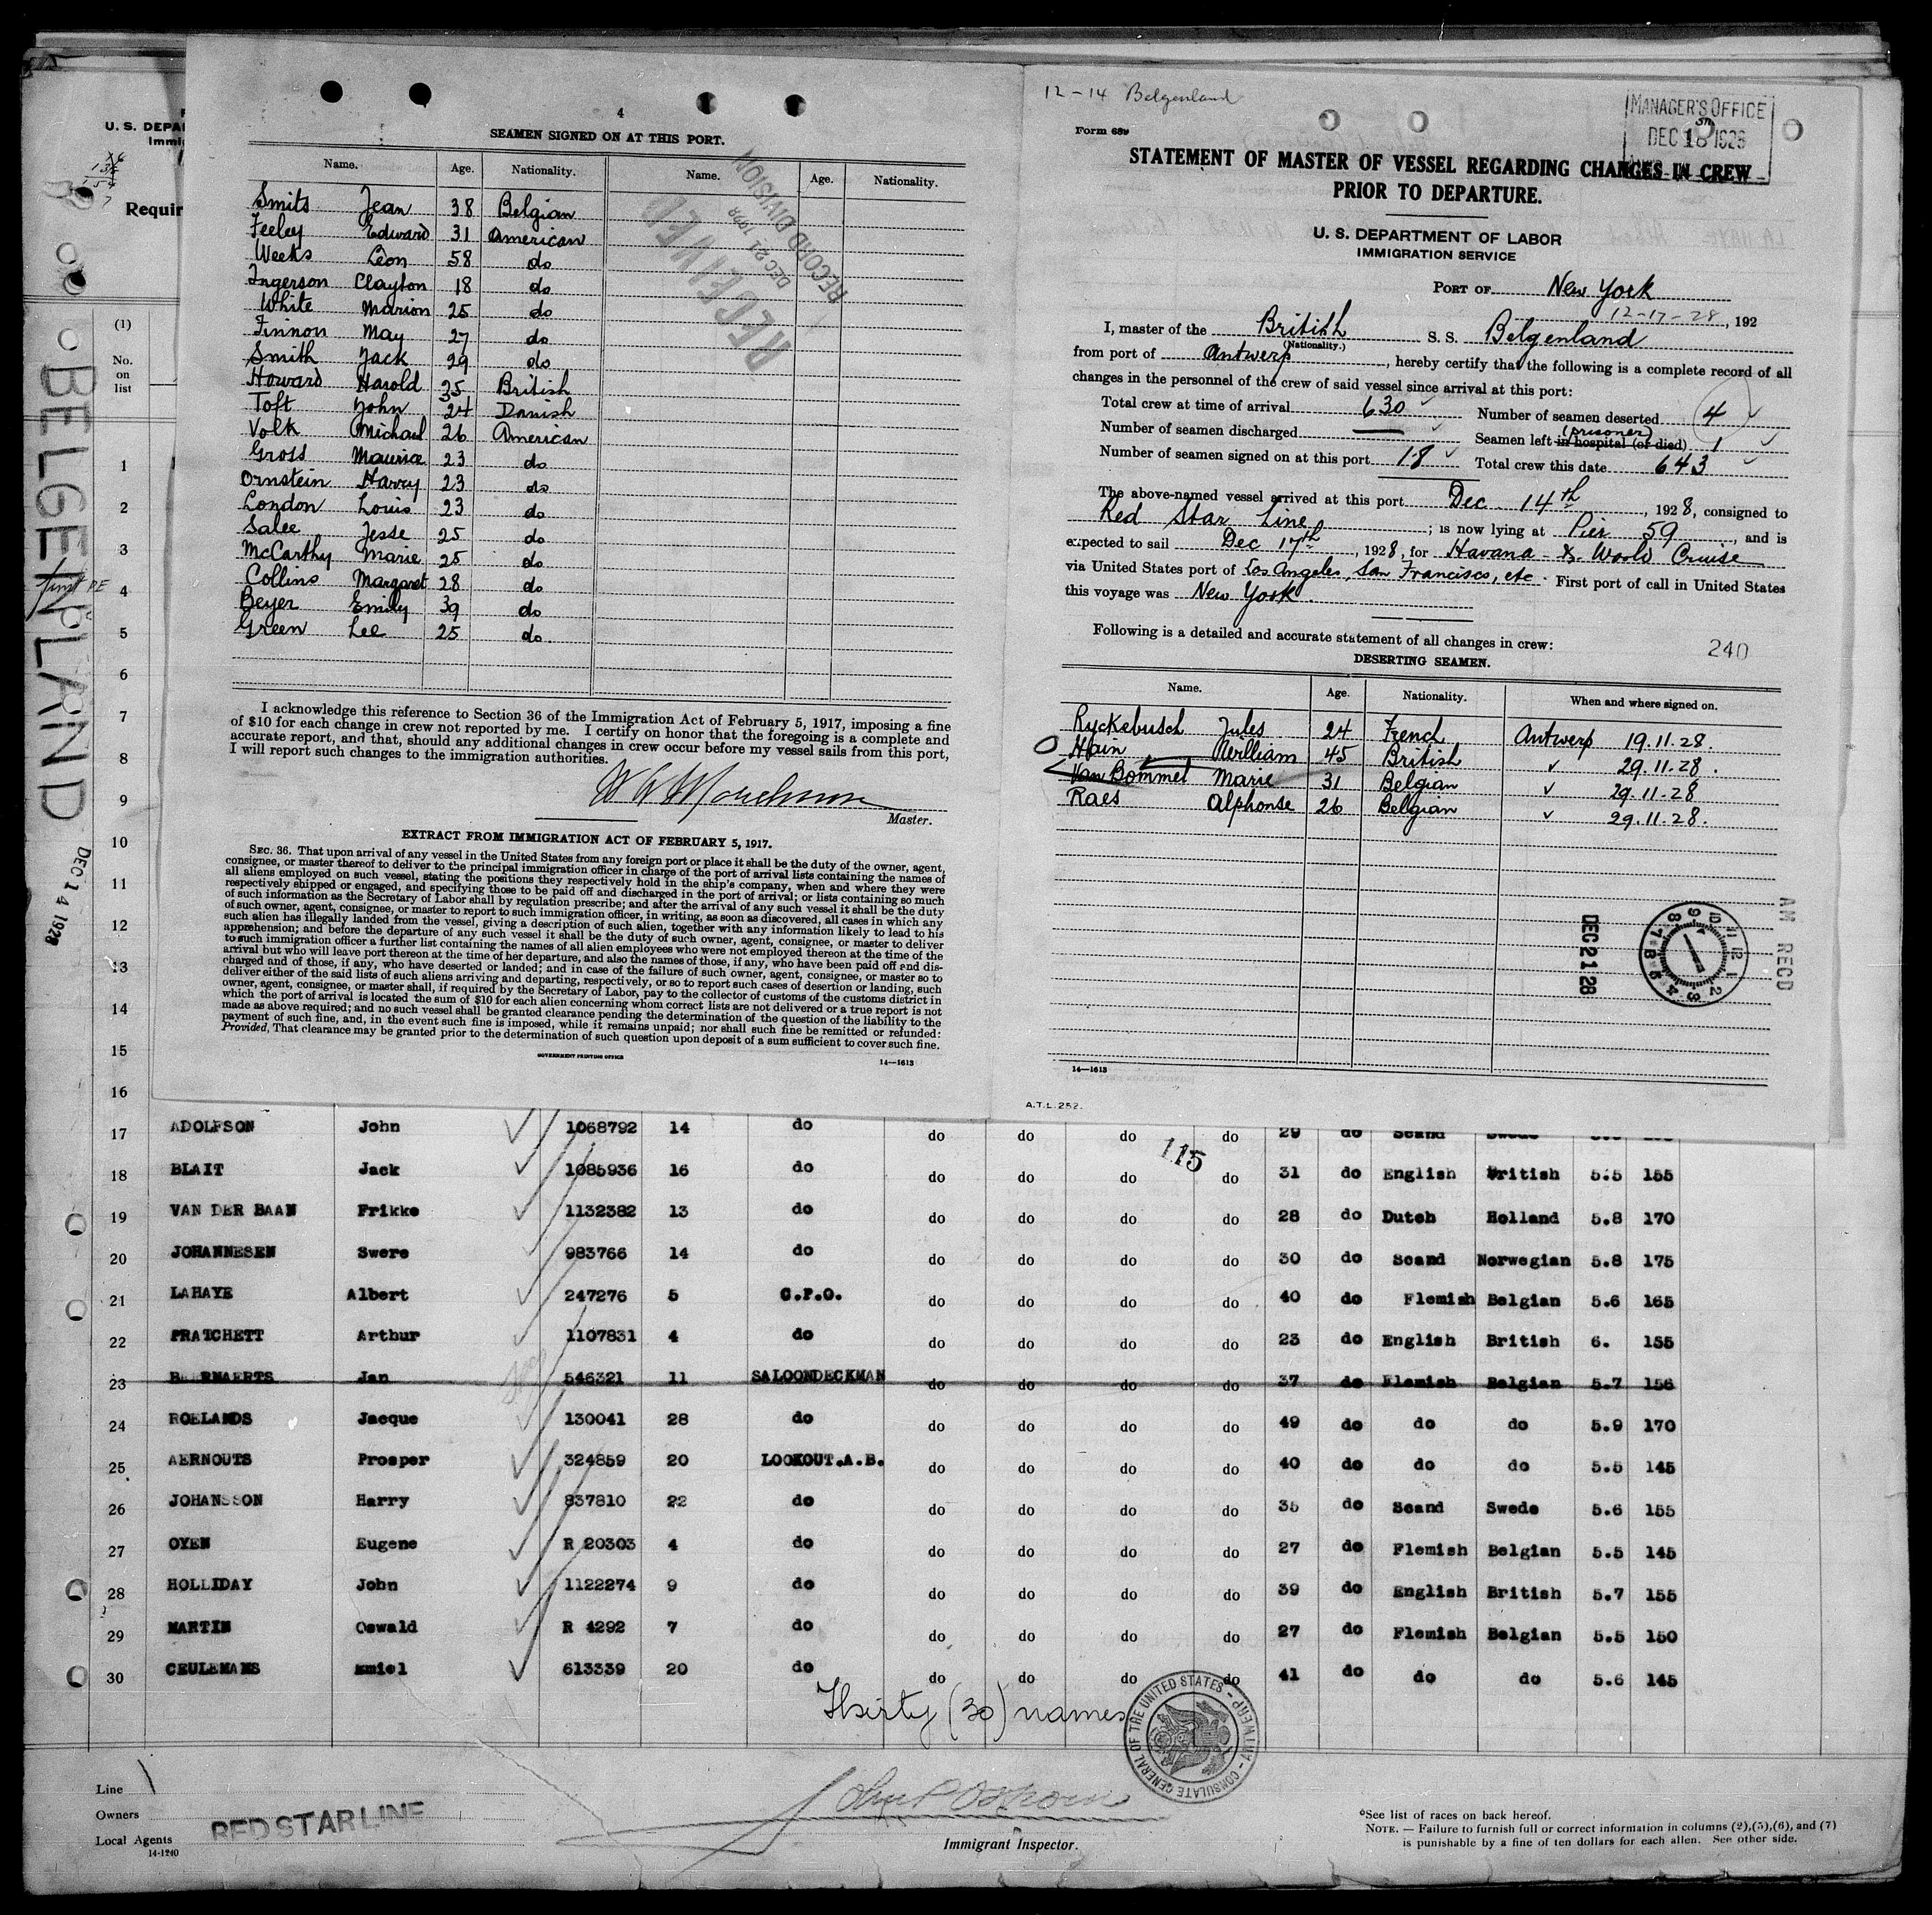 4
SEAMEN SIGNED ON AT THIS PORT.
Name. Age. Nationality. Name. Age. Nationality.
Smits Jean 38 Belgian
Feeley Edward 31 American
Weeks Leon 58 do
Ingerson Clayton 18 do
White Marion 25 do
Finnon May 27 do
Smith Jack 29 do
Howard Harold 35 British
Toft John 24 Danish
Volk Michael 26 American
Gross Maurice 23 do
Ornstein Harry 23 do
London Louis 23 do
Salee Jesse 25 do
McCarthy Marie 25 do
Collins Margaret 28 do
Beyer Emily 39 do
Green Lee 25 do
RECEIVED
DEC 21 1928
RECORD DIVISION
I acknowledge this reference to Section 36 of the Immigration Act of February 5, 1917, imposing a fine
of $10 for each change in crew not reported by me. I certify on honor that the foregoing is a complete and
accurate report, and that, should any additional changes in crew occur before my vessel sails from this port,
I will report such changes to the immigration authorities.
Master.
EXTRACT FROM IMMIGRATION ACT OF FEBRUARY 5, 1917.
SEC. 36. That upon arrival of any vessel in the United States from any foreign port or place it shall be the duty of the owner, agent,
consignee, or master thereof to deliver to the principal immigration officer in charge of the port of arrival lists containing the names of
all aliens employed on such vessel, stating the positions they respectively hold in the ship's company, when and where they were
respectively shipped or engaged, and specifying those to be paid off and discharged in the port of arrival; or lists containing so much
of such information as the Secretary of Labor shall by regulation prescribe; and after the arrival of any such vessel it shall be the duty
of such owner, agent, consignee, or master to report to such immigration officer, in writing, as soon as discovered, all cases in which any
such alien has illegally landed from the vessel, giving a description of such alien, together with any information likely to lead to his
apprehension; and before the departure of any such vessel it shall be the duty of such owner, agent, consignee, or master to deliver
to such immigration officer a further list containing the names of all alien employees who were not employed thereon at the time of the
arrival but who will leave port thereon at the time of her departure, and also the names of those, if any, who have been paid off and dis-
charged and of those, if any, who have deserted or landed; and in case of the failure of such owner, agent, consignee, or master so to
deliver either of the said lists of such aliens arriving and departing, respectively, or so to report such cases of desertion or landing, such
owner, agent, consignee, or master shall, if required by the Secretary of Labor, pay to the collector of customs of the customs district in
which the port of arrival is located the sum of $10 for each alien concerning whom correct lists are not delivered or a true report is not
made as above required; and no such vessel shall be granted clearance pending the determination of the question of the liability to the
payment of such fine, and, in the event such fine is imposed, while it remains unpaid; nor shall such fine be remitted or refunded:
Provided, That clearance may be granted prior to the determination of such question upon deposit of a sum sufficient to cover such fine.
GOVERNMENT PRINTING OFFICE
14—1613
12-14 Belgenland
Form 689
MANAGER'S OFFICE
DEC 18 1928
STATEMENT OF MASTER OF VESSEL REGARDING CHANGES IN CREW
PRIOR TO DEPARTURE.
U. S. DEPARTMENT OF LABOR
IMMIGRATION SERVICE
PORT OF New York
12-17-28, 192
I, master of the British S. S. Belgenland
(Nationality.)
from port of Antwerp, hereby certify that the following is a complete record of all
changes in the personnel of the crew of said vessel since arrival at this port:
Total crew at time of arrival 630 Number of seamen deserted 4
Number of seamen discharged — Seamen left in hospital (or died) (prisoner) 1
Number of seamen signed on at this port 18 Total crew this date 643
The above-named vessel arrived at this port Dec 14th, 1928, consigned to
Red Star Line; is now lying at Pier 59, and is
expected to sail Dec 17th, 1928, for Havana & World Cruise
via United States port of Los Angeles, San Francisco, etc. First port of call in United States
this voyage was New York.
Following is a detailed and accurate statement of all changes in crew:
240
DESERTING SEAMEN.
Name. Age. Nationality. When and where signed on.
Ryckebusch Jules 24 French Antwerp 19.11.28.
Hain William 45 British ✓ 29.11.28.
Van Bommel Marie 31 Belgian ✓ 29.11.28
Raes Alphonse 26 Belgian ✓ 29.11.28.
AM RECD
DEC 21 28
14—1613
A.T.L.252.
U. S. DEPA
Immi
Requir
BELGENLAND
DEC 14 1928
(1)
No.
on
list
1
2
3
4
5
6
7
8
9
10
11
12
13
14
15
16
115
17 ADOLFSON John 1068792 14 do do do do do 29 do Scand Swede
18 BLAIT Jack 1085936 16 do do do do do 31 do English British 5.5 155
19 VAN DER BAAN Frikke 1132382 13 do do do do do 28 do Dutch Holland 5.8 170
20 JOHANNESEN Swere 983766 14 do do do do do 30 do Scand Norwegian 5.8 175
21 LAHAYE Albert 247276 5 C.P.O. do do do do 40 do Flemish Belgian 5.6 165
22 PRATCHETT Arthur 1107831 4 do do do do do 23 do English British 6. 155
23 BEERNAERTS Jan 546321 11 SALOONDECKMAN do do do do 37 do Flemish Belgian 5.7 156
24 ROELANDS Jacque 130041 28 do do do do do 49 do do do 5.9 170
25 AERNOUTS Prosper 324859 20 LOOKOUT.A.B. do do do do 40 do do do 5.5 145
26 JOHANSSON Harry 837810 22 do do do do do 35 do Scand Swede 5.6 155
27 OYEN Eugene R 20303 4 do do do do do 27 do Flemish Belgian 5.5 145
28 HOLLIDAY John 1122274 9 do do do do do 39 do English British 5.7 155
29 MARTIN Oswald R 4292 7 do do do do do 27 do Flemish Belgian 5.5 150
30 CEULEMANS Emiel 613339 20 do do do do do 41 do do do 5.6 145
Thirty (30) names
CONSULATE GENERAL OF THE UNITED STATES - ANTWERP -
Line
Owners
Local Agents
RED STAR LINE
14-1240
Immigrant Inspector.
*See list of races on back hereof.
NOTE. — Failure to furnish full or correct information in columns (2),(5),(6), and (7)
is punishable by a fine of ten dollars for each alien. See other side.